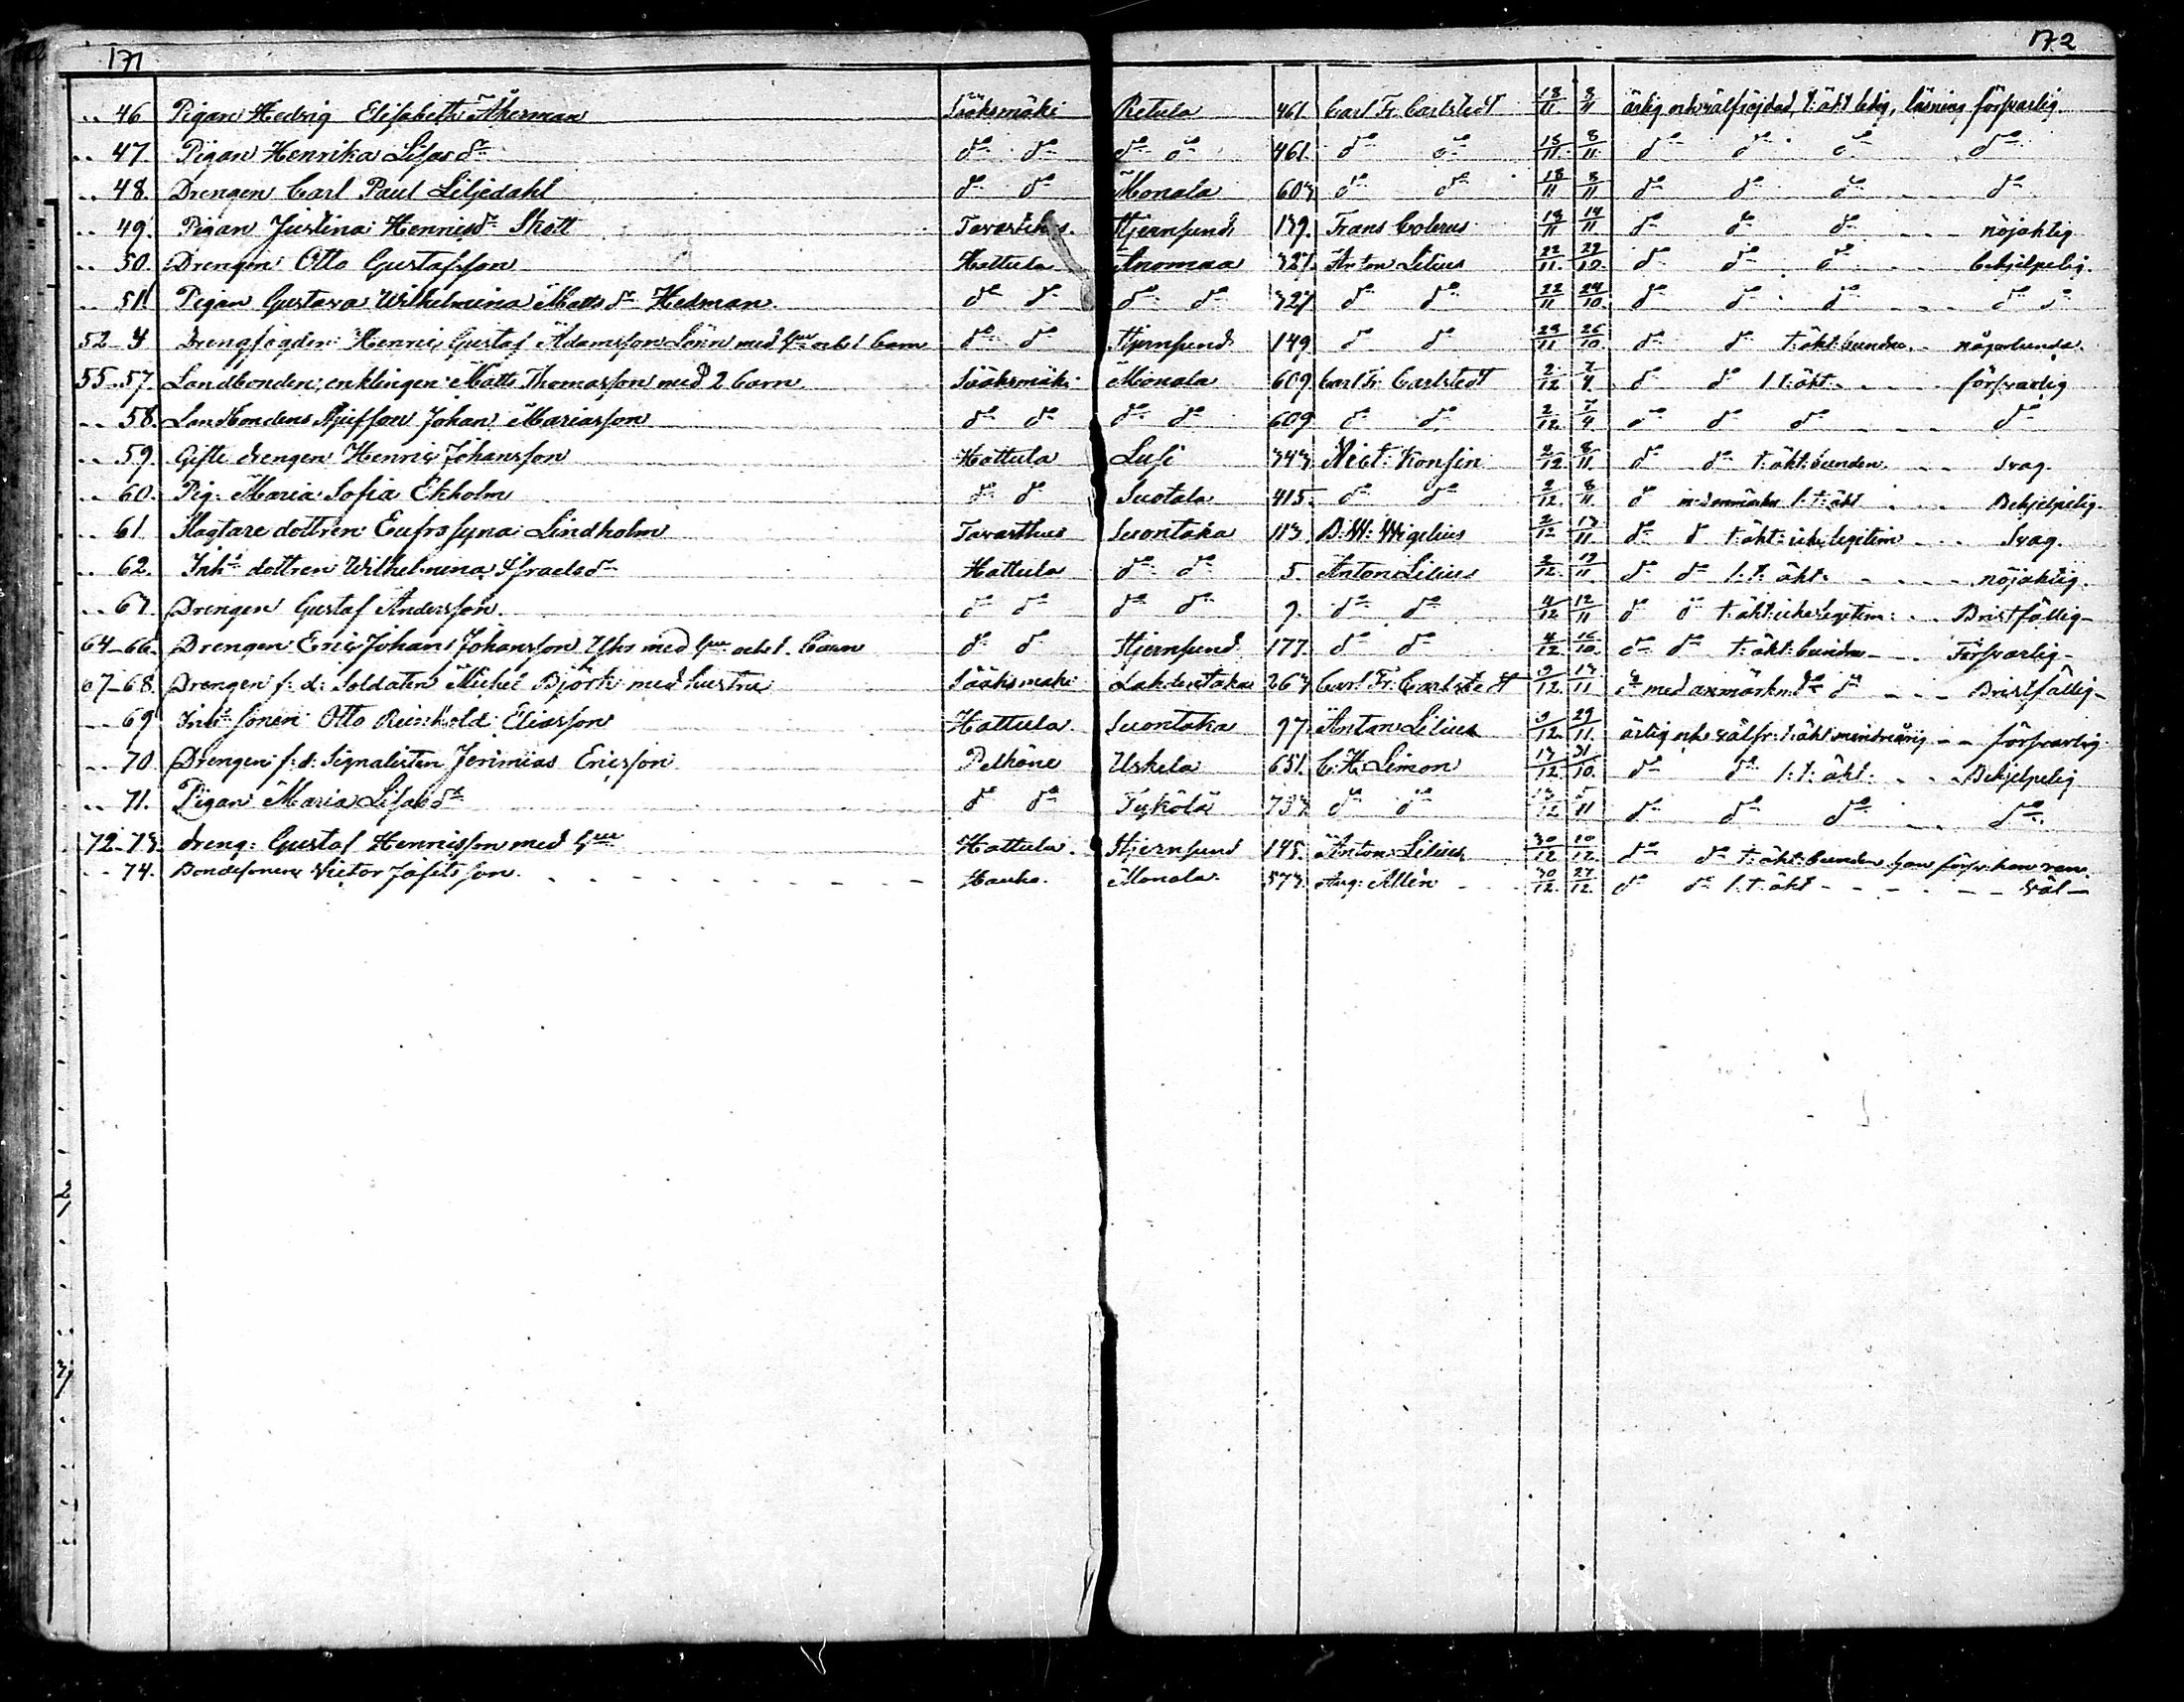 171
172
46 Pigan Hedvig Elisabeth Åkerman Sääksmäki Retula 461 Carl Fr. Carlstedt 18/11 8/11 ärlig och välfrejdad, t: äkt ledig, läsning försvarlig
47. Pigan Henrika Lisasdr do do do do 461. do do 18/11. 8/11. do do do do
48. Drengen Carl Paul Liljedahl do do Monala 603 do do 18/11 8/11 do do do do
49. Pigan Justina Henricsdr Skott Tavastehus. Hjernsund 139. Frans Colerus 19/11 14/11 do do do nöjaktig
50. Drengen Otto Gustafsson Hattula Anomaa 327. Anton Lilius 22/11. 29/10. do do do behjelpelig.
51. Pigan Gustava Wilhelmina Mattsdr Hedman do do do do 327 do do 22/11 24/10. do do do do do
52-4 Drengfogden Henric Gustaf Adamsson Lönn med hu och 1 barn do do Hjernsund 149 do do 29/11 26/10. do do t: äkt: bunden någorlunda.
55-57. Landbonden, enklingen Matts Thomasson med 2 barn Sääksmäki Monala 609 Carl Fr. Carlstedt 2/12 7/4. do do l: t: äkt försvarlig
58. Landbondens Styfson Johan Mariasson do do do do 609 do do 2/12. 7/4. do do do do
59. Gifte drengen Henric Johansson Hattula Lusi 343 Vict: Konsin 2/12. 8/11. do do t: äkt: bunden svag.
60. Pig. Maria Sofia Ekholm do do Suotala 415 do do 2/12. 8/11. do med anmärkn l: t: äkt Behjelpelig.
61 Slagtare dottren Eufrosyna Lindholm Tavasthus Suontaka 113 B. W. Wigelius 2/12 13/11. do do t: äkt: icke legitim Svag.
62. Inhs dottren Wilhelmina Israelsdr Hattula do do 5. Anton Lilius 2/12. 12/11. do do l: t: äkt nöjaktig.
63. Drengen Gustaf Andersson do do do do 9. do do 4/12 12/11 do do t: äkt: icke legitim: Bristfällig
64-66. Drengen Eric Johan Johansson Ufhs med hu och 1. barn do do Hjernsund 177. do do 4/12. 16/10. do do t: äkt: bunden Försvarlig
67-68. Drengen f: d: Soldaten Michel Björk med hustru Sääksmäki Lahdentaka 263 Carl Fr. Carlstedt 9/12. 13/11 do med anmärkn. do do Bristfällig
69 Inhs sonen Otto Reinhold Eliasson Hattula Suontaka 97. Anton Lilius 9/12. 29/11. ärlig och välfr: t: äkt minderårig försvarlig.
70 Drengen f: d: Signalisten Jerimias Ericsson Pelkäne Uskela 651. C. H. Limon 13/12. 31/10. do do l: t: äkt. Behjelpelig
71. Pigan Maria Lisaksdr do do Tyrkölä 733 do do 13/12 5/11 do do do do
72-73. dreng: Gustaf Henricsson med hu Hattula. Hjernsund 145. Anton Lilius 30/12 10/12. do do t: äkt: bunden han försv. hon ren.
74. Bondesonen Victor Jäfetsson. Hauho. Monala. 573. Aug: Allén 30/12. 27/12. do do l: t: äkt väl